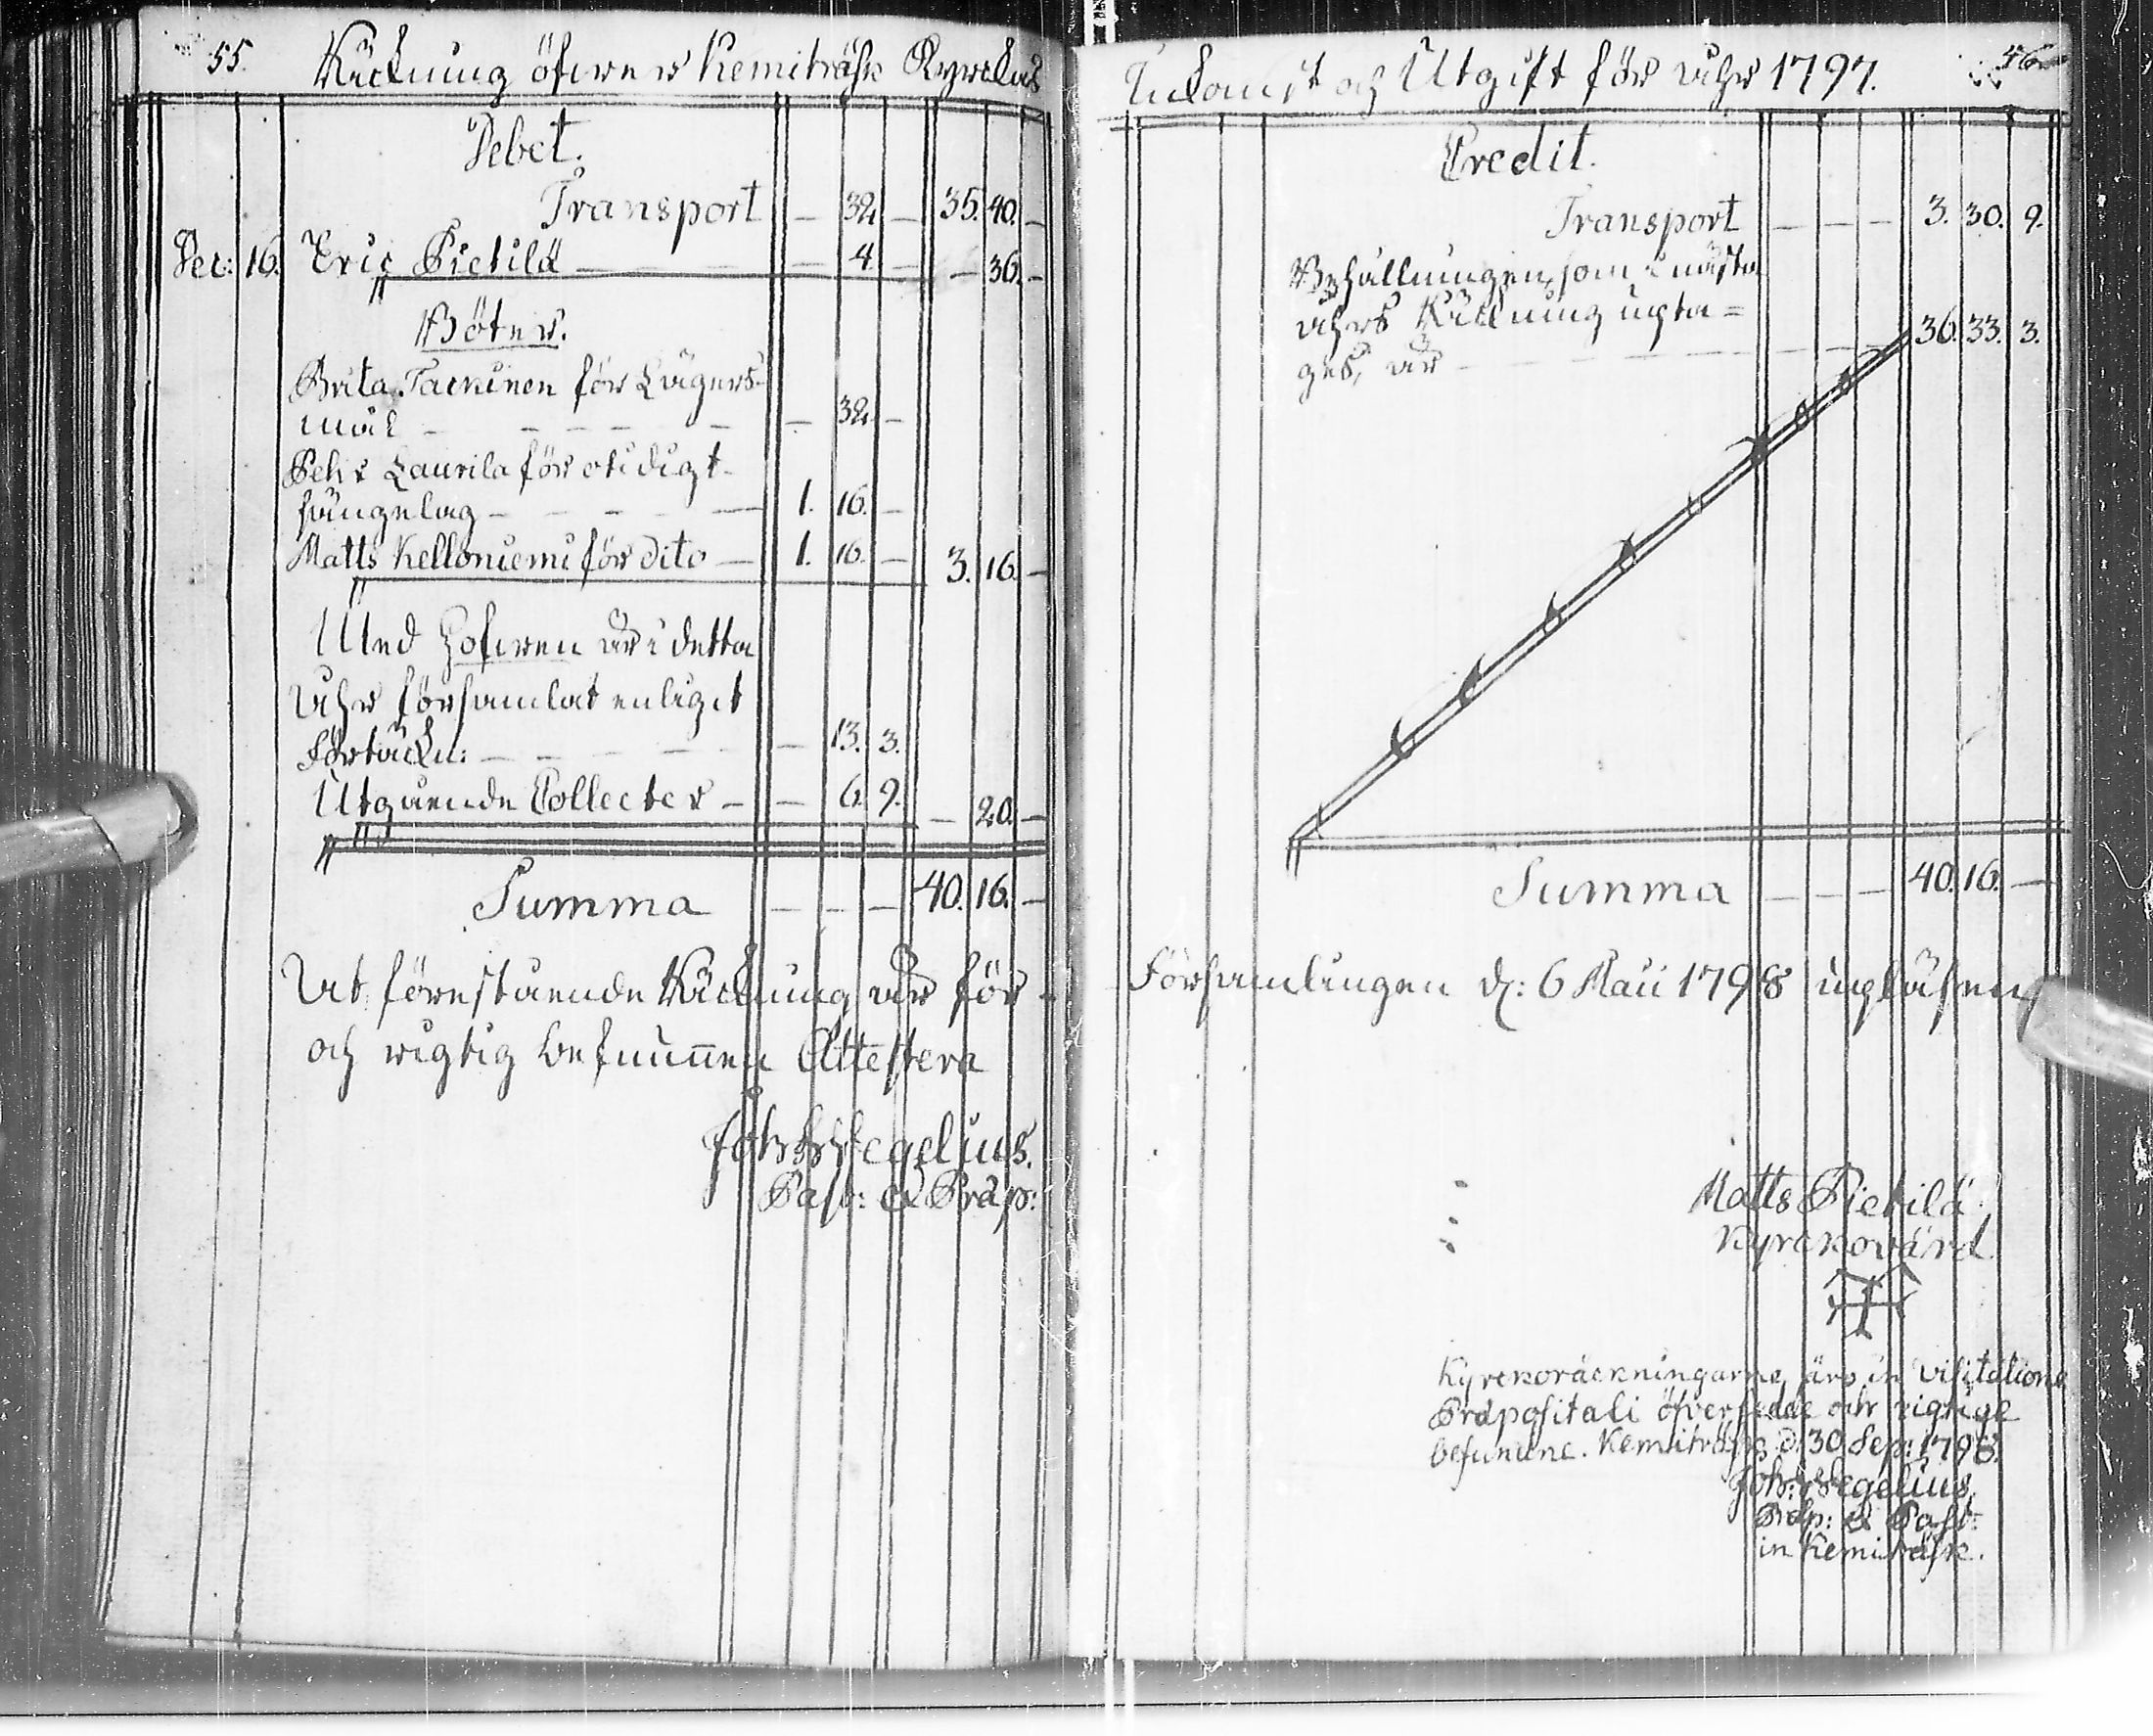 55. Räckning öfwer Kemiträsk Kyrckas
Debet.
Transport — 32. — 35. 40. —
Dec: 16. Eric Pietilä — — 4. — — 36. —
Böter.
Brita Tackinen för Lägers-
mål — — 32. —
Pehr Laurila för otidigt
sängelag — 1. 16. —
Matts Kelloniemi för dito — 1. 16. — 3. 16. —
Med Hofwen är i detta
åhr församlat enligit
förtäckn: — — 13. 3.
Utgående Collecter — — 6. 9. — 20. —
Summa — — — 40. 16. —
At förestående Räckning är för
och rigtig befunnen Attestera
Joh: Wegelius.
Past: et Præp:
Inkomst och Utgift för åhr 1797. 56
Credit.
Transport — — — 3. 30. 9.
Behållningen, som i nästa
åhrs Räckning upta=
ges, är — 36. 33. 3.
Summa — — — 40. 16. —
Församlingen d: 6 Maii 1798 upläsen
Matts Pietilä
Kyrckovärd
Kyrckoräckningarne äro in Visitatione
Præpositali öfversedde och rigtige
befundne. Kemiträsk d. 30 Sep: 1798.
Joh: Wegelius
Præp: et Past:
in Kemiträsk.